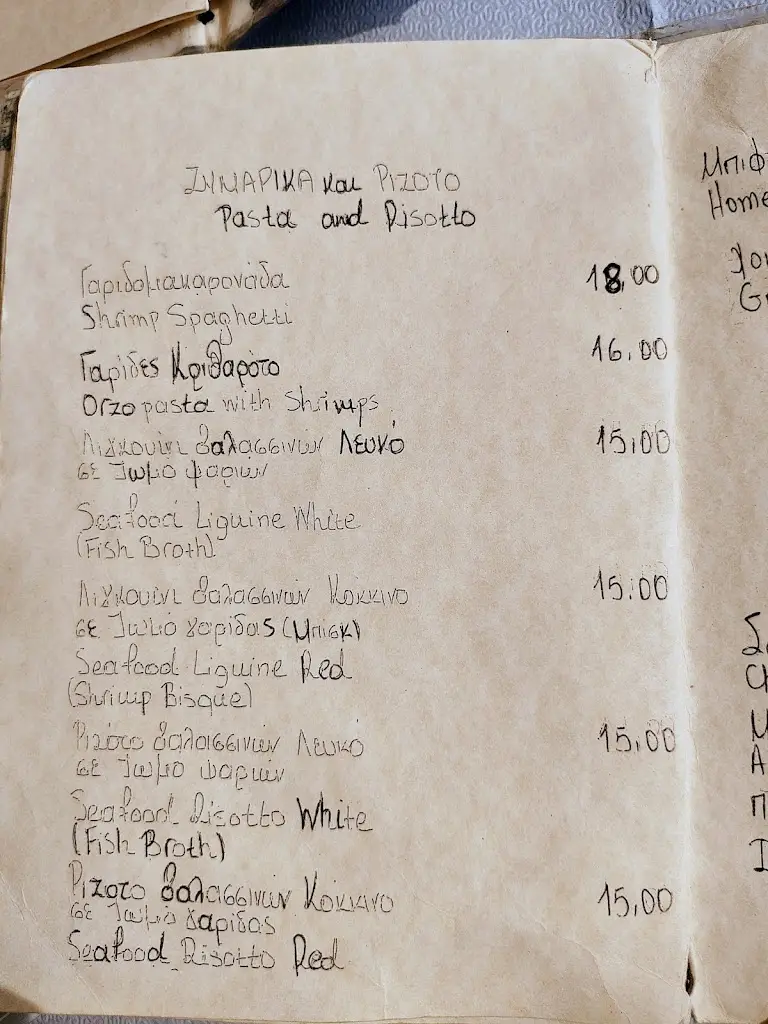 ΖΥΜΑΡΙΚΑ και ΡΙΖΟΤΟ
Pasta and Risotto
Γαριδομακαρονάδα 18,00
Shrimp Spaghetti
Γαρίδες Κριθαρότο 16,00
Orzo pasta with Shrimps
Λιγκουίνι θαλασσινών Λευκό 15,00
σε Ζωμό ψαριών
Seafood Liguine White
(Fish Broth)
Λιγκουίνι θαλασσινών Κόκκινο 15,00
σε Ζωμό γαρίδας (Μπισκ)
Seafood Liguine Red
(Shrimp Bisque)
Ριζότο θαλασσινών Λευκό 15,00
σε Ζωμό ψαριών
Seafood Risotto White
(Fish Broth)
Ριζοτο θαλασσινών Κόκκινο 15,00
σε Ζωμό γαρίδας
Seafood Risotto Red
Μπιφ
Home